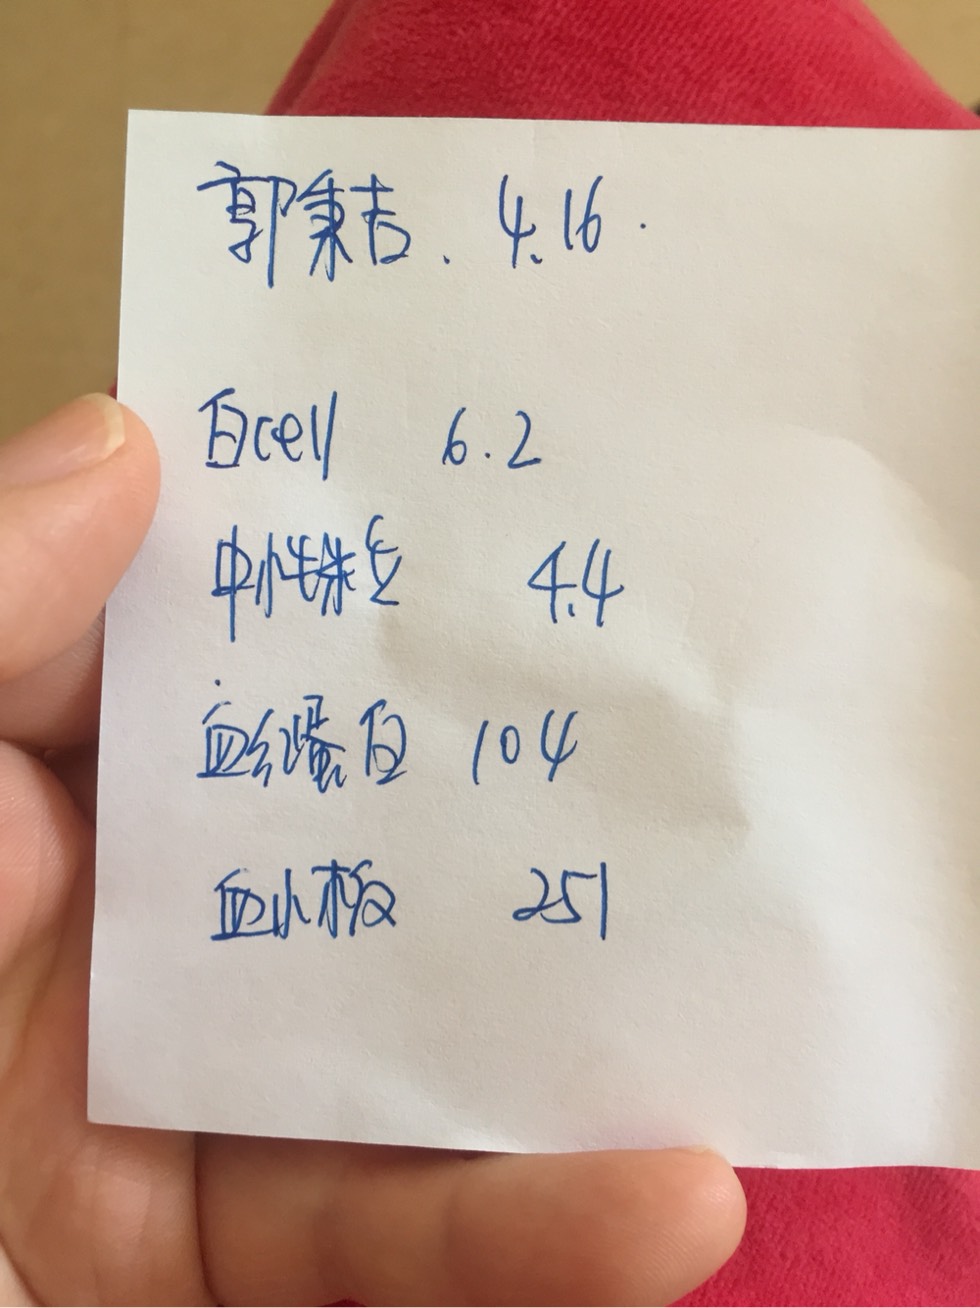 郭秉吉. 4.16.
白cell 6.2
中性 4.4
血红蛋白 104
血小板 251